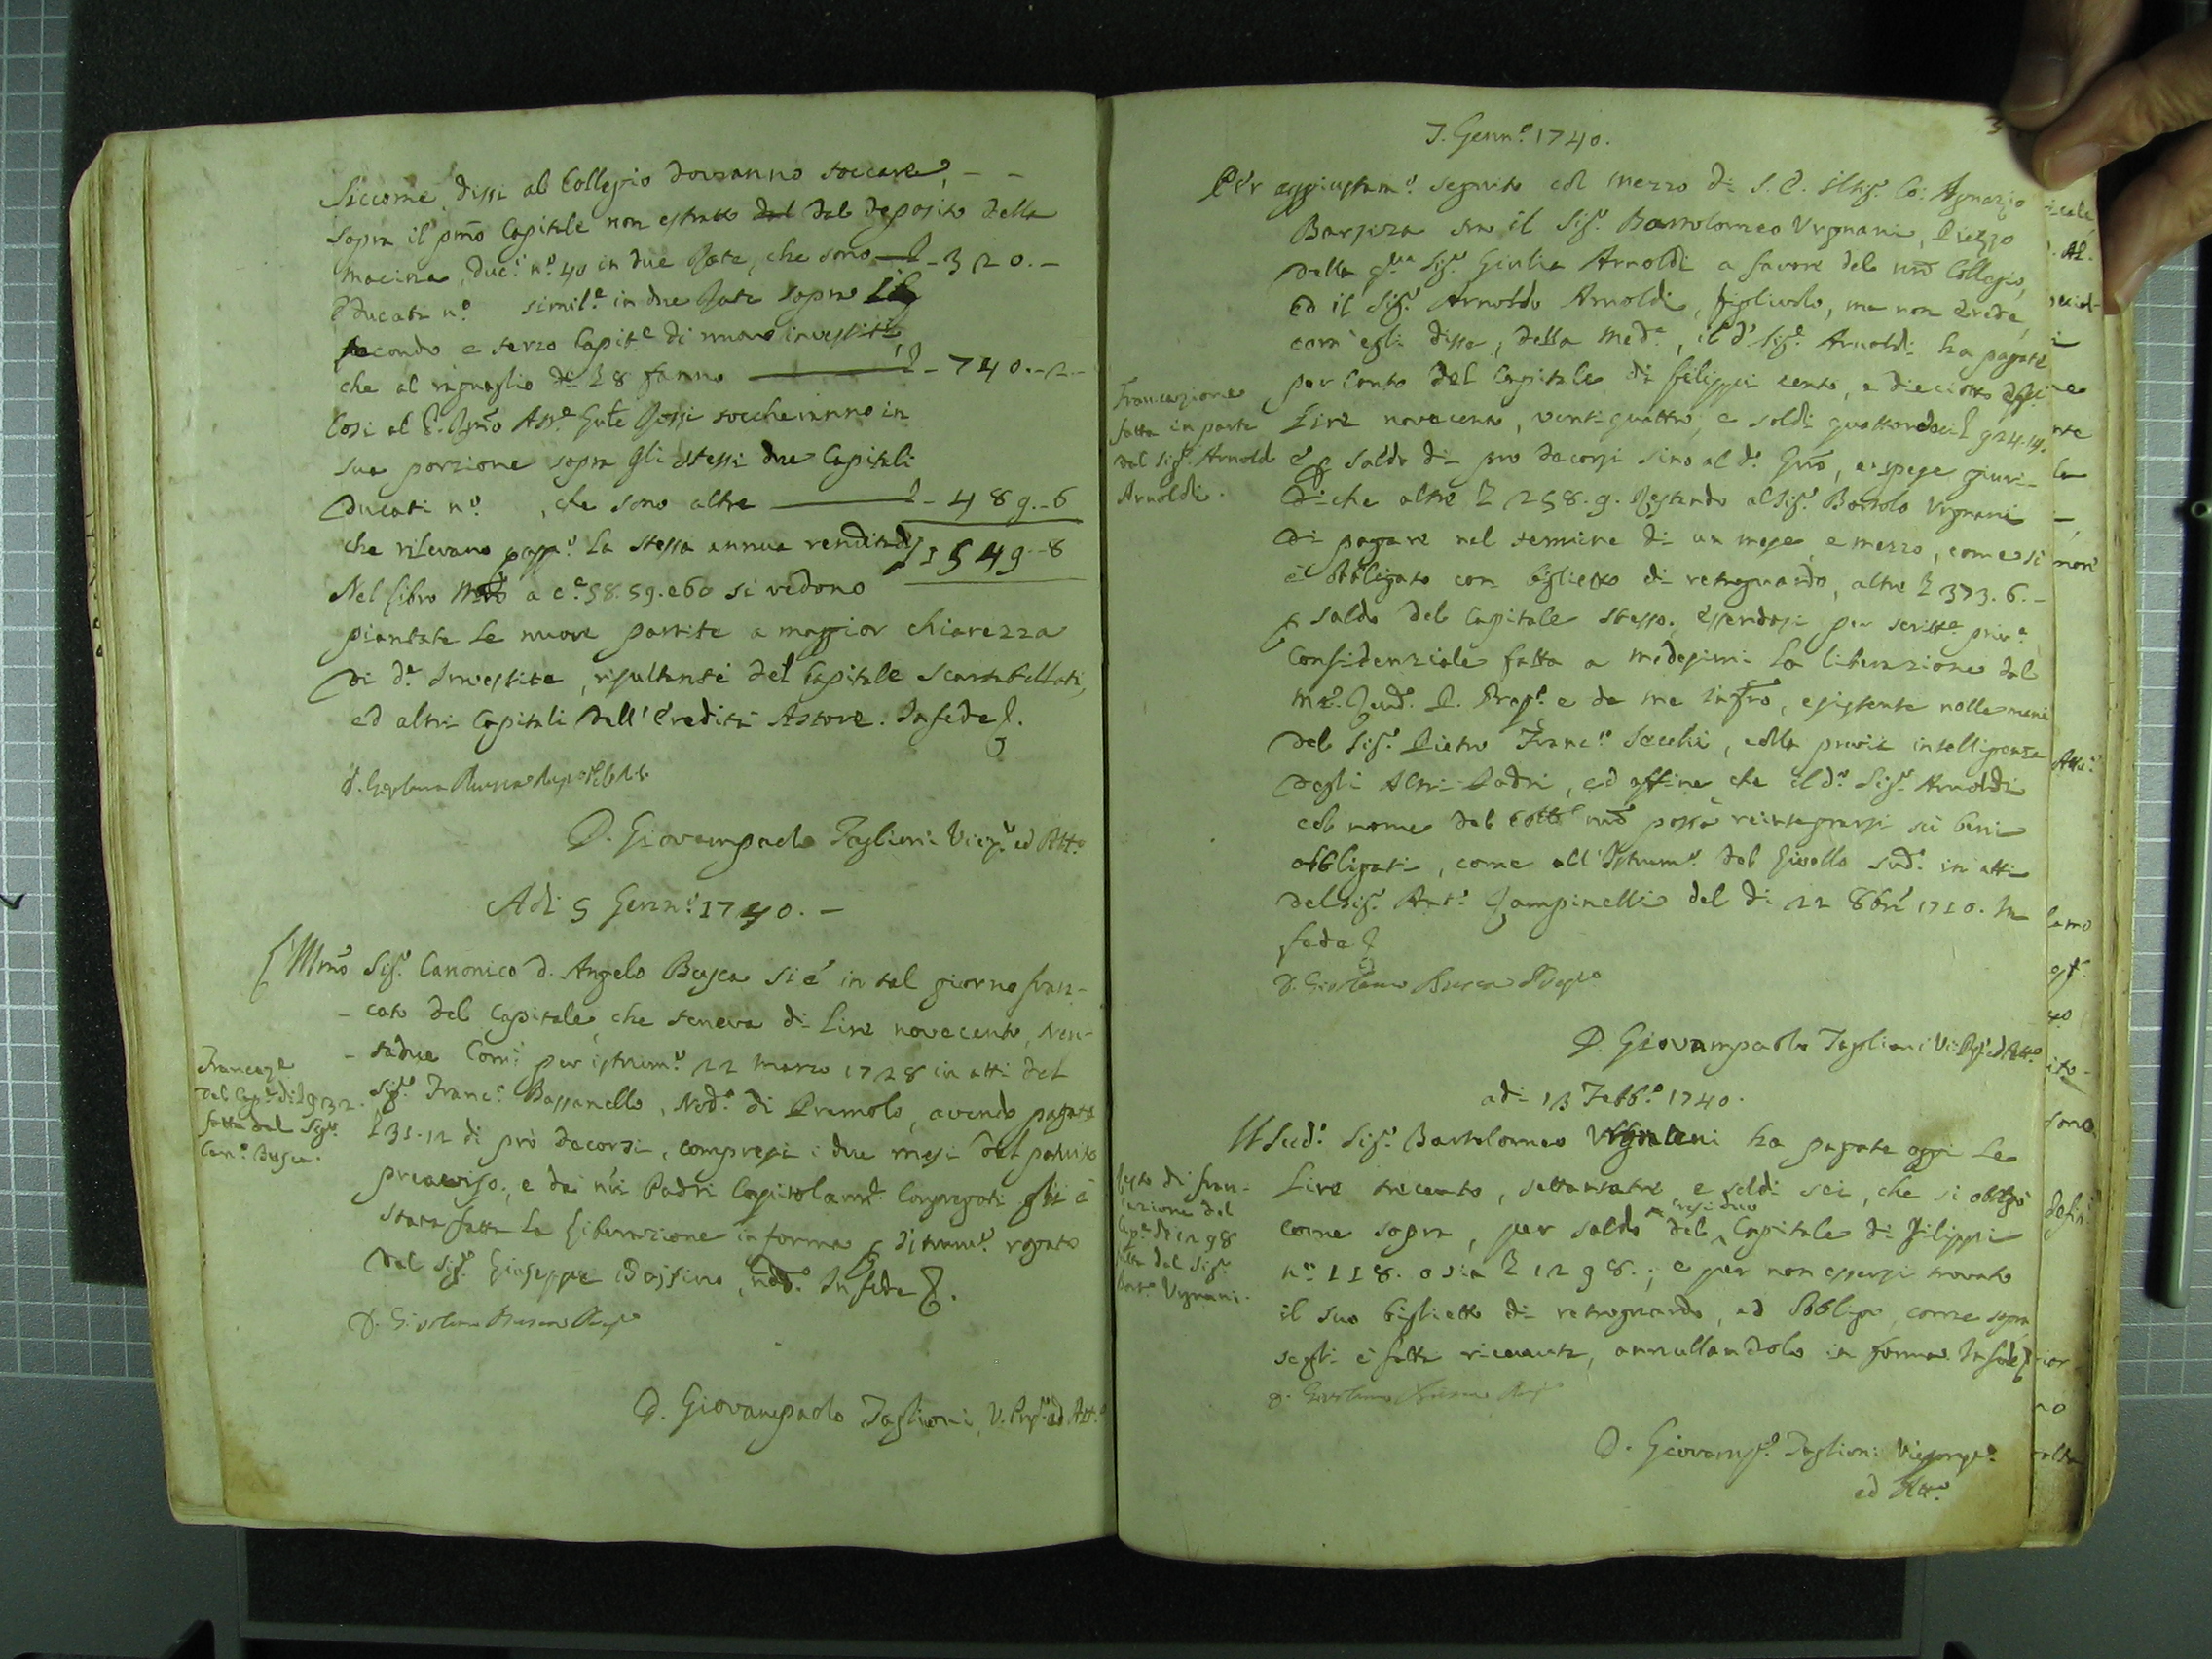 Siccome dissi al Collegio dovranno toccare, - -
sopra il pmo Capitale non estratto dal dal deposito della
macina, Duc.i n.o 40 in due Rate, che sono L - 320. -
E Ducati n.o simil.e in due Rate sopra il
secondo e terzo Capit.e di nuovo investiti,
che al raguaglio di L 8 fanno L - 740. - 2 -
Così al P. Rossi toccheranno in
sua porzione sopra gli stessi due Capitali
Ducati n.o , che sono altre L - 489. - 6
che rilevano la stessa annua rendita di L 1549 - 8
Nel libro a c.e 58. 59. e 60 si vedono
piantate le nuove partite a maggior chiarezza
di d.e Investite, risultanti del Capitale Scartabellati,
ed altri Capitali dell'Eredità Astore. In fede
D. Giovampaolo Taglioni Vicep.o ed Att.o
Adi 5 Genn.o 1740. -
Il Mmo Sig.r Canonico D. Angelo Busca si è in tal giorno fran-
- cato del Capitale, che teneva di Lire novecento, tren-
- tadue Corr.i per istrum.o 22 Marzo 1728 in atti del
Sig.r Franc.o Bassanello, Nod.o di Premolo, avendo pagate
L 31.12 di prò decorsi, compresi i due mesi del pattuito
preavviso, e dai nri Padri Capitolarm.e Congregati gli è
stata fatta la liberazione in forma p istrum.o rogato
dal Sig.r Giuseppe Bassino, nod.o In fede
Francaz.e
del Cap.le di L 932.
fatta dal Sig.r
Can.o Busca.
D. Girolamo Busca Prep.o
D. Giovampaolo Taglioni, V. Prep.o ed Att.o
3
7. Genn.o 1740.
Per aggiustam.o seguito col mezzo di S. E. il Sig.r Co: Ignazio
Barziza tra il Sig.r Bartolomeo Vrgnani, Pieggio
della q.m Sig.ra Giulia Arnoldi a favore del nro Collegio,
ed il Sig.r Arnoldo Arnoldi, figliuolo, ma non Erede,
com'egli disse, della med.a, il d.o Sig.r Arnoldi ha pagate
per conto del Capitale di filippi cento, e dieciotto
Lire novecento, ventiquattro, e soldi quattordeci L 924.14.
E p saldo di prò decorsi sino al d.o Gno, e spese giuri-
diche altre L 258.9. Restando al Sig.r Bortolo Vrgnani
di pagare nel termine di un mese, e mezzo, come si
è obbligato con biglietto di retroguardo, altre L 373.6. -
p saldo del Capitale stesso. Essendosi per scritt.a priv.a
Confidenziale fatta a medesimi la liberazione dal
M. Rev.do P. Prep.o e da me infro, esistente nelle mani
del Sig.r Pietro Franc.o Secchi, colla previa intelligenza
degli Altri Padri, ed affine che il d.o Sig.r Arnoldi
col nome del Coll.o nro possa reintegrarsi sui beni
obbligati, come all'Istrum.o del livello sud.o in atti
del Sig.r Ant.o Zampinelli del di 22 8bre 1710. In
fede
Francazione
fatta in parte
dal Sig.r Arnoldo
Arnoldi.
D. Girolamo Busca Prep.o
D. Giovampaolo Taglioni V: Prep.o ed Att.o
adi 13 Febb.o 1740.
Il Sud.o Sig.r Bartolomeo Vrgnani ha pagate oggi le
Lire trecento, settantatre, e soldi sei, che si obbligò
come sopra, per saldo residuo del Capitale di Filippi
n.o 118. o sia L 1298.; e per non essersi trovato
il suo biglietto di retroguardo, ed Obbligo, come sopra
segli è fatta ricevuta, annullandolo in forma. In fede
Resto di fran-
cazione del
Cap.le di 1298
fatta dal Sig.r
Bort.o Vrgnani.
D. Girolamo Busca Prep.o
D. Giovamp.o Taglioni Viceprep.o
ed Att.o